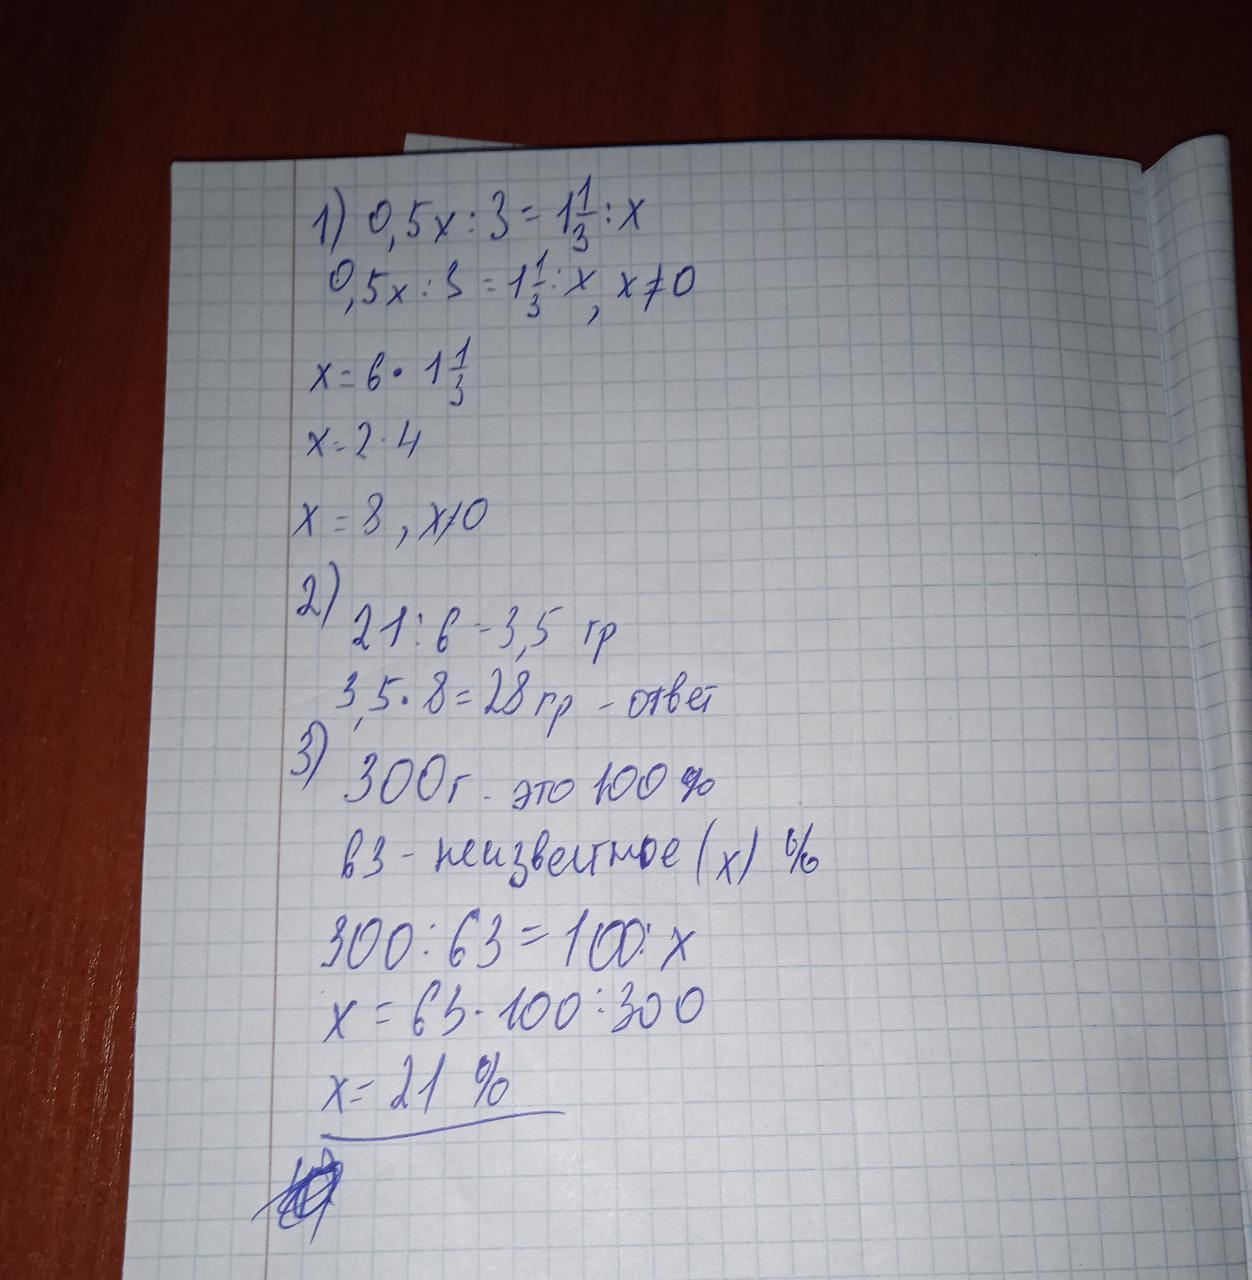 1) 0,5x : 3 = 1 1/3 : x
0,5x : 3 = 1 1/3 : x, x ≠ 0
x = 6 · 1 1/3
x = 2 · 4
x = 8, x ≠ 0
2)
21 : 6 - 3,5 гр
3,5 · 8 = 28 гр - ответ
3) 300 г - это 100 %
63 - неизвестное (x) %
300 : 63 = 100 : x
x = 63 · 100 : 300
x = 21 %